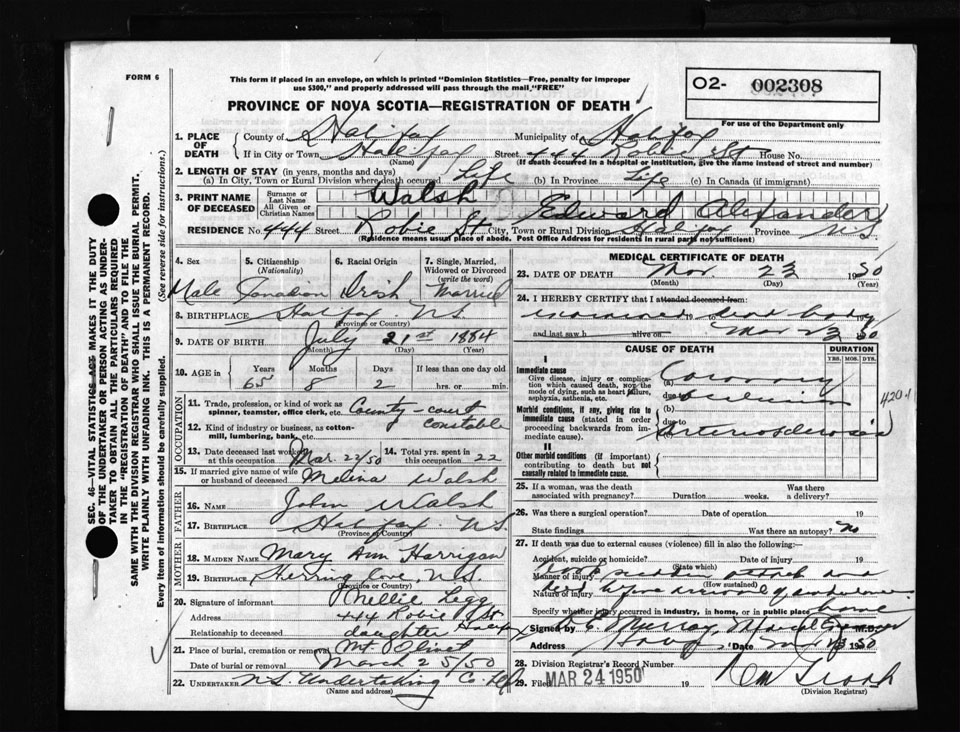 FORM 6
This form if placed in an envelope, on which is printed "Dominion Statistics—Free, penalty for improper
use $300," and properly addressed will pass through the mail "FREE"
PROVINCE OF NOVA SCOTIA—REGISTRATION OF DEATH
O2- 002308
For use of the Department only
SEC. 46—VITAL STATISTICS ACT MAKES IT THE DUTY
OF THE UNDERTAKER OR PERSON ACTING AS UNDER-
TAKER TO OBTAIN ALL THE PARTICULARS REQUIRED
IN THE "REGISTRATION OF DEATH" AND TO FILE THE
SAME WITH THE DIVISION REGISTRAR WHO SHALL ISSUE THE BURIAL PERMIT.
WRITE PLAINLY WITH UNFADING INK. THIS IS A PERMANENT RECORD.
Every item of information should be carefully supplied. (See reverse side for instructions.)
1. PLACE OF DEATH County of Halifax Municipality of Halifax
If in City or Town Halifax (Name) Street 444 Robie St House No.
(If death occurred in a hospital or institution, give the name instead of street and number)
2. LENGTH OF STAY (in years, months and days)
(a) In City, Town or Rural Division where death occurred Life (b) In Province Life (c) In Canada (if immigrant)
3. PRINT NAME OF DECEASED Surname or Last Name Walsh
All Given or Christian Names Edward Alexander
RESIDENCE No. 444 Street Robie St. City, Town or Rural Division Halifax Province N.S.
(Residence means usual place of abode. Post Office Address for residents in rural parts not sufficient)
4. Sex 5. Citizenship (Nationality) 6. Racial Origin 7. Single, Married, Widowed or Divorced (write the word)
Male Canadian Irish Married
8. BIRTHPLACE Halifax N.S.
(Province or Country)
9. DATE OF BIRTH July 21st 1884
(Month) (Day) (Year)
10. AGE in Years Months Days If less than one day old
65 8 2 hrs. or min.
OCCUPATION
11. Trade, profession, or kind of work as spinner, teamster, office clerk, etc. County-court
Constable
12. Kind of industry or business, as cotton-mill, lumbering, bank, etc.
13. Date deceased last worked at this occupation Mar. 22/50 14. Total yrs. spent in this occupation 22
15. If married give name of wife or husband of deceased Melina Walsh
FATHER
16. NAME John Walsh
17. BIRTHPLACE Halifax N.S.
(Province or Country)
MOTHER
18. MAIDEN NAME Mary Ann Harrigan
19. BIRTHPLACE Herring Cove, N.S.
(Province or Country)
20. Signature of informant Nellie Legg
Address 444 Robie St Halifax
Relationship to deceased daughter
21. Place of burial, cremation or removal Mt. Olivet
Date of burial or removal March 25/50
22. UNDERTAKER N.S. Undertaking Co. Ltd
(Name and address)
MEDICAL CERTIFICATE OF DEATH
23. DATE OF DEATH Mar 23 1950
(Month) (Day) (Year)
24. I HEREBY CERTIFY that I attended deceased from:
examined 19 dead body
and last saw h alive on Mar 23 1950
CAUSE OF DEATH DURATION
YRS. MOS. DYS.
I
Immediate cause
Give disease, injury or complication which caused death, not the mode of dying, such as heart failure, asphyxia, asthenia, etc.
(a) Coronary
due to occlusion
420.1
Morbid conditions, if any, giving rise to immediate cause (stated in order proceeding backwards from immediate cause).
(b)
due to
(c) Arteriosclerosis
II
Other morbid conditions (if important) contributing to death but not causally related to immediate cause.
25. If a woman, was the death associated with pregnancy? Duration weeks. Was there a delivery?
26. Was there a surgical operation? Date of operation 19
State findings Was there an autopsy? No
27. If death was due to external causes (violence) fill in also the following:
Accident, suicide or homicide? Date of injury 19
(State which)
Manner of injury
(How sustained)
Nature of injury before arrival of ambulance
Specify whether injury occurred in industry, in home, or in public place home
Signed by E. Murray, Medical Examiner M.D.
Address Date 1950
28. Division Registrar's Record Number
29. Filed MAR 24 1950 19
(Division Registrar)